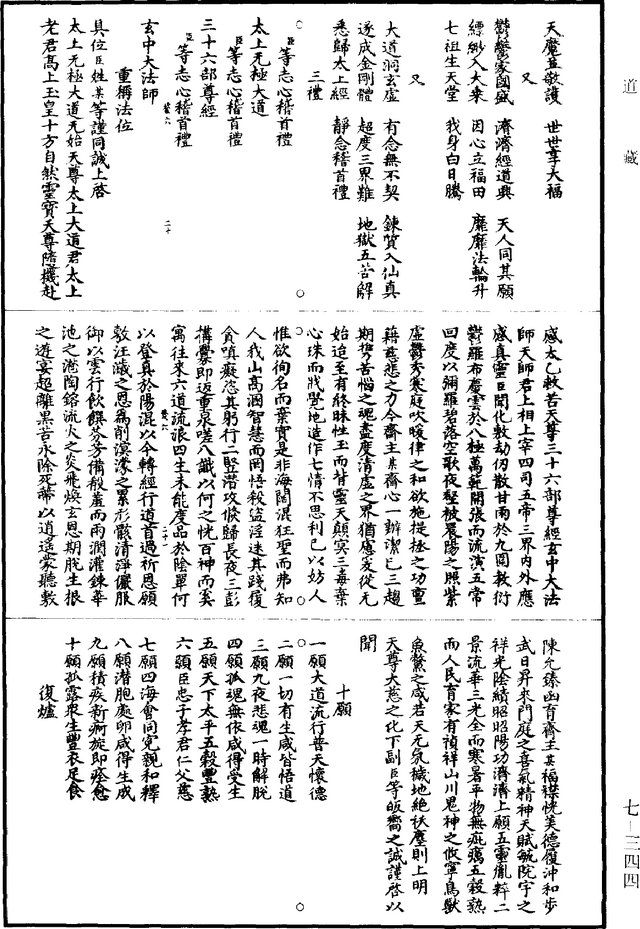 道藏
天魔並敬護　世世享大福
又
鬱鬱家國盛　濟濟經道興　天人同其願
縹緲入大乘　因心立福田　靡靡法輪升
七祖生天堂　我身白日騰
又
大道洞玄虛　有念無不契　鍊質入仙真
遂成金剛體　超度三界難　地獄五苦解
悉歸太上經　靜念稽首禮
三禮
臣等志心稽首禮
太上无極大道
臣等志心稽首禮
三十六部尊經
臣等志心稽首禮
玄中大法師
重稱法位
具位臣姓某等謹同誠上啓
太上无極大道元始天尊太上大道君太上
老君高上玉皇十方自然靈寶天尊隨機赴
感太乙救苦天尊三十六部尊經玄中大法
師天師君上相上宰四司五帝三界內外應
感真靈臣聞化敷劫仞散甘雨於九圍教衍
鬱羅布慶雲於八極萬範開張而流演五常
回度以彌羅碧落空歌夜壑被晨陽之照紫
虛鬱秀寒庭吹暖律之和欲施提拯之功亶
藉慈悲之力今齋主某齋心一辦潔已三趨
期勞苦惱之魂盡度清虛之界猶慮爰從无
始迨至有終昧性玉而背靈天顛冥三毒棄
心珠而戕覺地造作七情不思利己以妨人
惟欲徇名而棄實是非海闊混狂聖而弗知
人我山高涸智慧而罔悟殺盜淫迷其踐履
貪嗔癡恣其躬行二豎潛攻倐歸長夜三彭
構釁即返重泉嗟八識以何之恍百神而奚
寓往來六道流浪四生未能度品於陰單何
以登真於陽混以今轉經行道首過祈恩願
敷汪濊之恩為削溟濛之累形骸清淨儼服
御以雲行飲饌芬芳備般羞而雨潤灌鍊華
池之滝陶鎔流火之炎飛煥玄恩期脫生根
之遊宴超離黑苦永除死蔕以逍遙家聽敷
陳允臻函育齋主某福禄恍美德履沖和步
武日昇來門庭之喜氣精神天賦毓院宇之
祥光陰績昭昭陽功濟濟上願五靈胤粹二
景流華三光全而寒暑平物無疵癘五穀熟
而人民育家有禎祥山川鬼神之攸寧鳥獸
魚鱉之咸若天无氛穢地絶袄塵則上明
天尊大慈之化下副臣等皈嚮之誠謹啓以
聞
十願
一願大道流行普天懷德
二願一切有生咸皆悟道
三願九夜悲魂一時解脫
四願孤魂無依咸得受生
五願天下太平五穀豐熟
六願臣忠子孝君仁父慈
七願四海會同冤親和釋
八願潛胞處卵咸得生成
九願積疾新痾旋即痊愈
十願孤露衆生豐衣足食
復爐
七—三四四